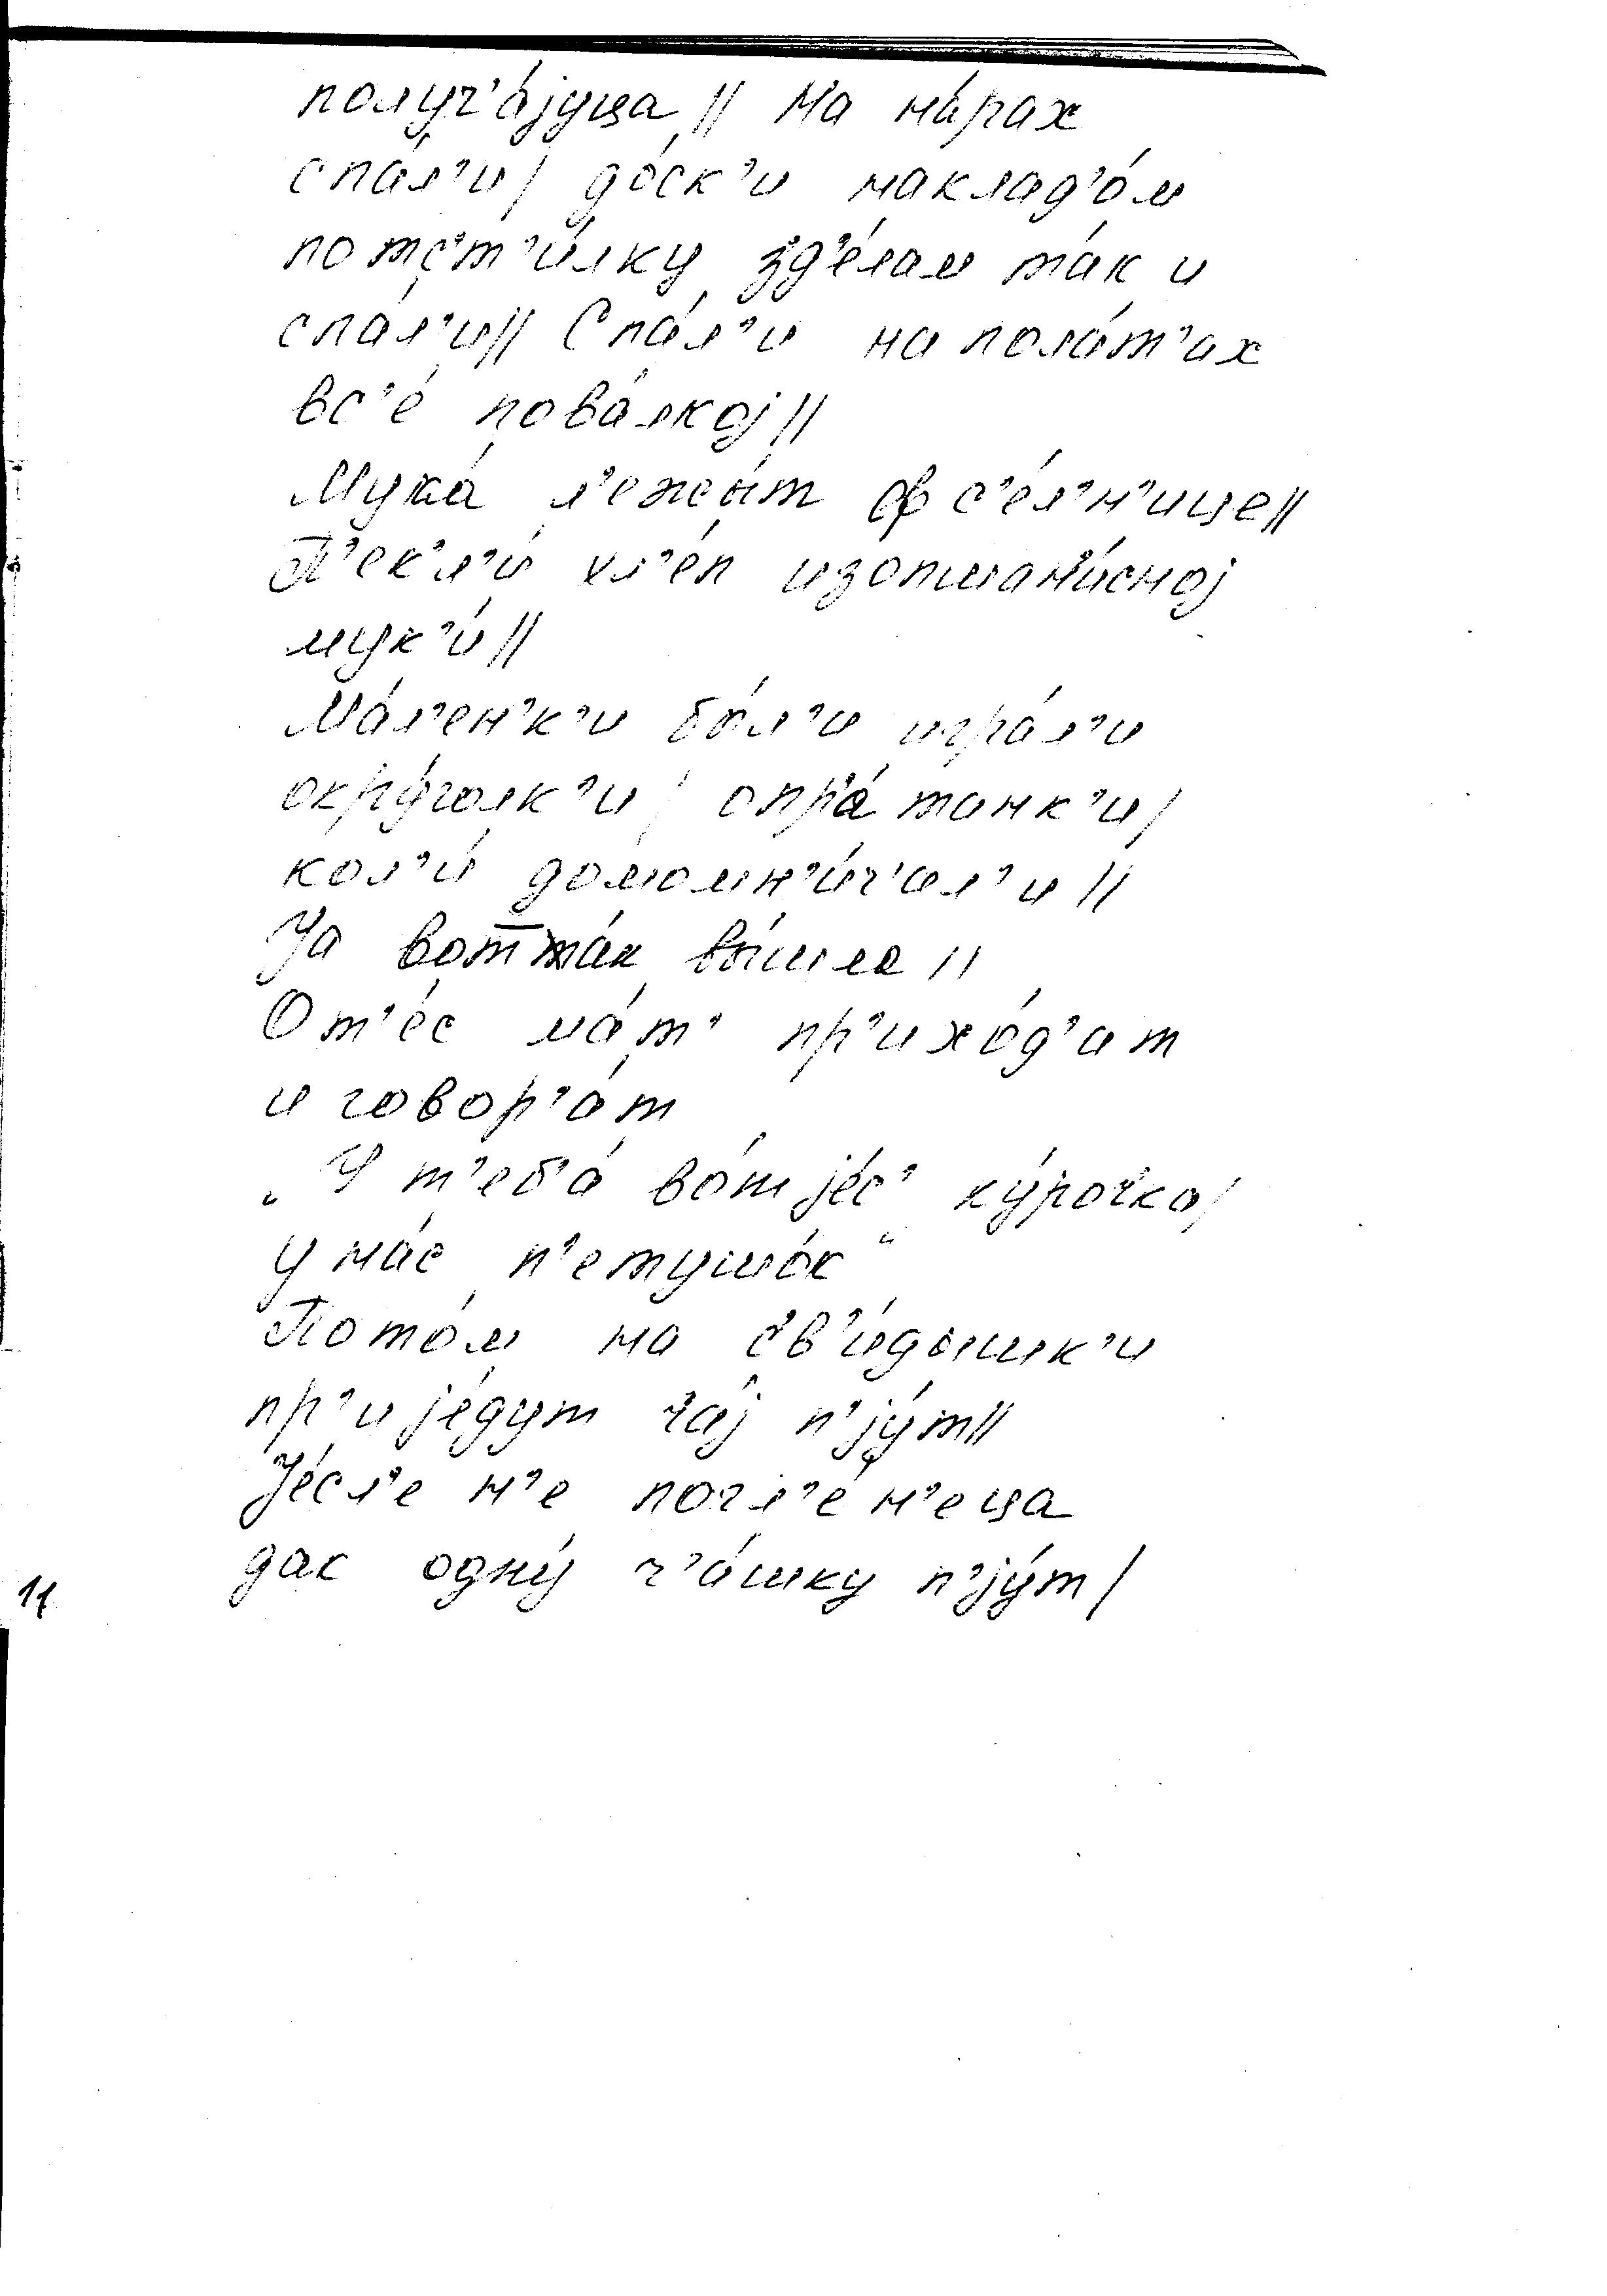 получ'а́jуца // На на́рах
спа́л'и / до́ск'и наклад'о́м
потс'т'и́лку з'д'е́лам та́к и
спа́л'и // Спа́л'и на пола́т'ах
вс'е́ пова́лкоj //
Мука́ л'ежы́т ф с'е́л'н'ице //
П'ек'л'и́ хл'е́п изопшан'и́сноj
мук'и́ //
Ма́л'ен'к'и бы́л'и игра́л'и
окру́галк'и / опр'а́танк'и /
кол'и́ домомн'и́ч'ал'и //
Jа вотта́к вы́шла //
От'е́с ма́т' пр'ихо́д'ат
и говор'а́т
„У т'еб'а́ во́т jе́с' ку́рочка /
у на́с п'етушо́к“
Пото́м на с'в'и́дышк'и
пр'иjе́дут ча́j п'jу́т //
Jе́сл'е н'е погл'е́н'еца
дак одну́ ч'а́шку п'jу́т /
11